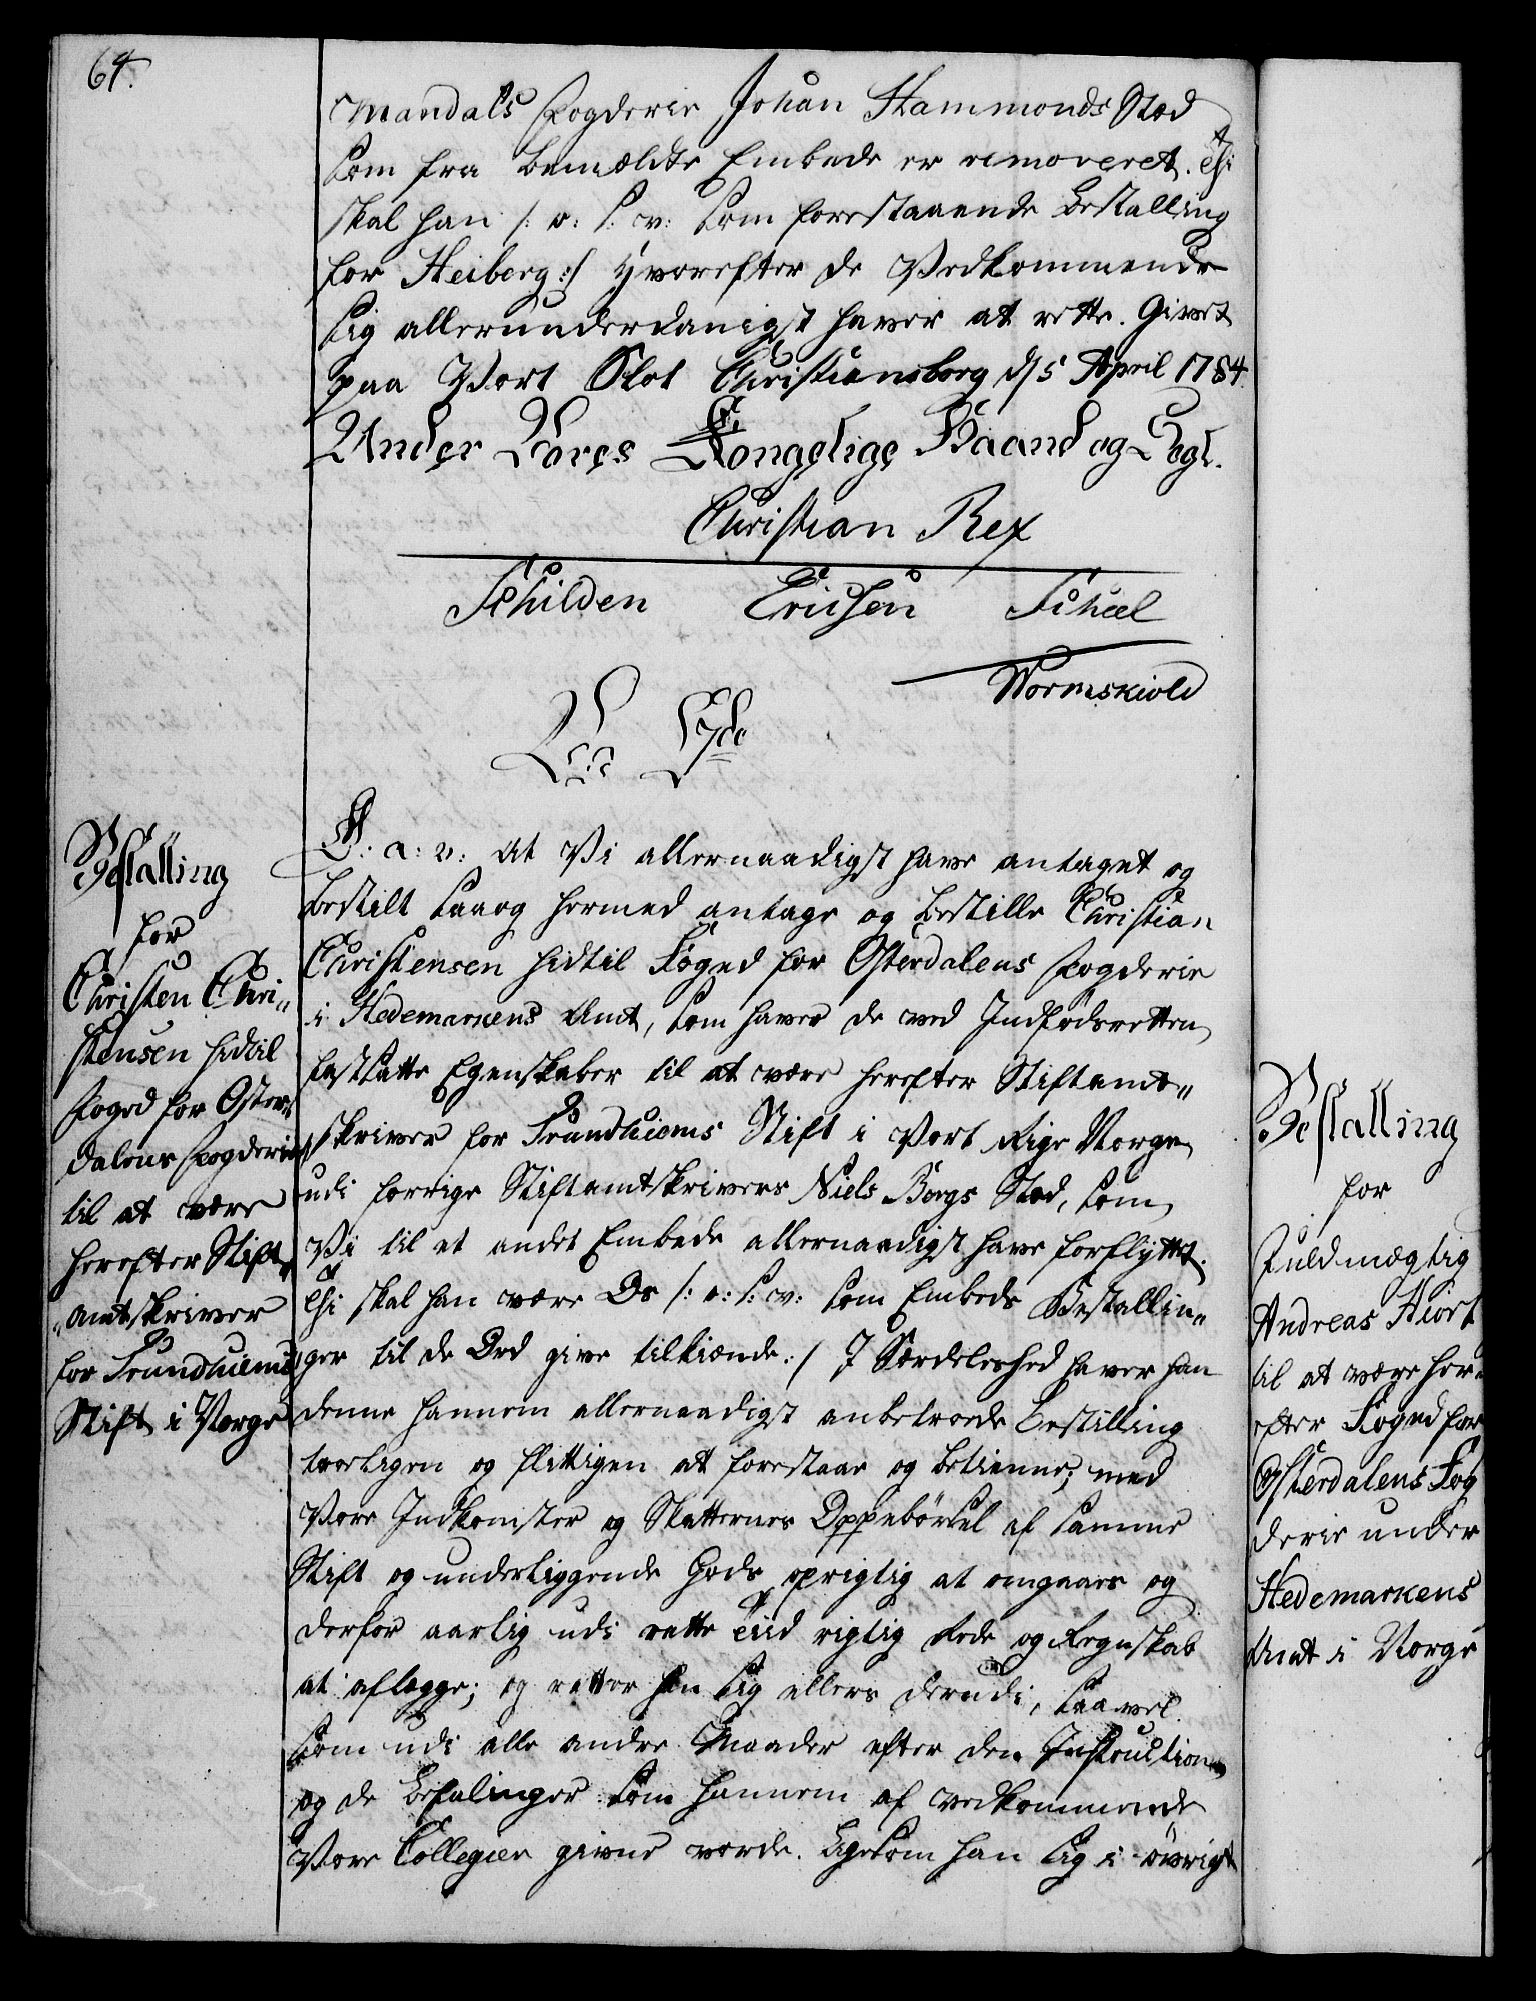 64.
Mandals Fogderie Johan Hammonds Sted
som fra bemældte Embede er removeret. Thi
skal han /: o: s: v: som forestaaende Bestalling
for Heiberg :/ Hvorefter de Vedkommende
sig allerunderdanigst haver at rette. Givet
paa Vort Slot Christiansborg d/5 April 1784.
Under Vores Kongelige Haand og Segl.
Christian Rex
Schilden Ericksen Scheel
Wormskiold
Bestalling
for
Christen Chri„
stensen hidtil
Foged for Øster„
dalens Fogderie
til at være
herefter Stift„
„amtskriver
for Trundhiems
Stift i Norge
G: a: v: At Vi allernaadigst have antaget og
bestilt saa og hermed antage og bestille Christian
Christensen hidtil Foged for Østerdalens Fogderie
i Hedemarkens Amt, som haver de ved Indfødsretten
fastsatte Egenskaber til at være herefter Stiftamt„
skriver for Trundhiems Stift i Vort Rige Norge
udi forrige Stiftamtskrivers Niels Bergs Sted, som
Vi til et andet Embede allernaadigst have forflyttet.
Thi skal han være Os /: o: s: v: som Embeds Bestallin„
ger til de Ord give tilkiende :/ I Særdeleshed haver han
denne hannem allernaadigst anbetroede Bestilling
troeligen og flittigen at forestaae og betienne; med
Vore Indkomster og Skatternes Oppebørsel af samme
Stift og underliggende Gods oprigtig at omgaaes og
derfor aarlig udi rette Tiid rigtig Rede og Regnskab
at aflægge; og retter han sig ellers derudi, saavel
som udi alle andre Maader efter den Instruction
og de Befalinger som hannem af vedkommende
Vore Collegier givne vorde. Ligesom han sig i øvrigt
Bestalling
for
Fuldmægtig
Andreas Hiort
til at være her„
efter Foged for
Østerdalens Fog
derie under
Hedemarkens
Amt i Norge